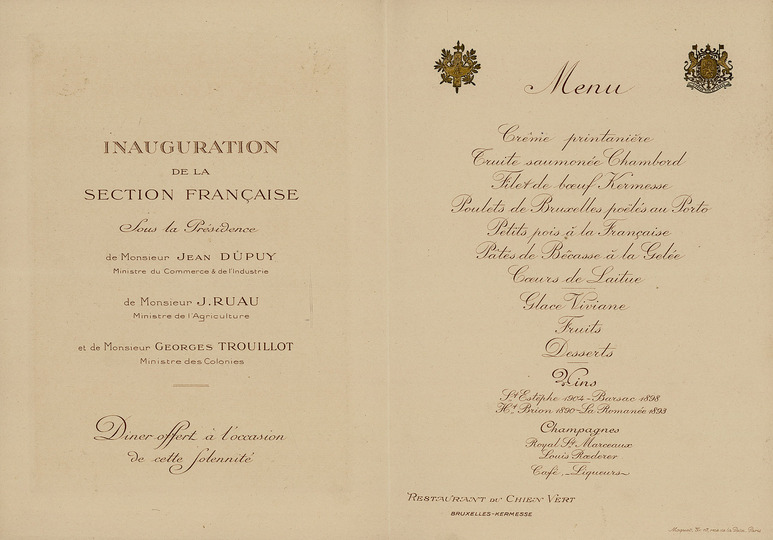 INAUGURATION
DE LA
SECTION FRANÇAISE
Sous la Présidence
de Monsieur JEAN DUPUY
Ministre du Commerce & de l'Industrie
de Monsieur J. RUAU
Ministre de l'Agriculture
et de Monsieur GEORGES TROUILLOT
Ministre des Colonies
Diner offert à l'occasion
de cette Solennité
Menu
Crème printanière
Truite saumonée Chambord
Filet de bœuf Kermesse
Poulets de Bruxelles poëlés au Porto
Petits pois à la Française
Pâtés de Bécasse à la Gelée
Cœurs de Laitue
Glace Viviane
Fruits
Desserts
Vins
St Estèphe 1904 - Barsac 1898
Ht Brion 1890 - La Romanée 1893
Champagnes
Royal St Marceaux
Louis Rœderer
Café - Liqueurs
RESTAURANT DU CHIEN VERT
BRUXELLES-KERMESSE
Paris